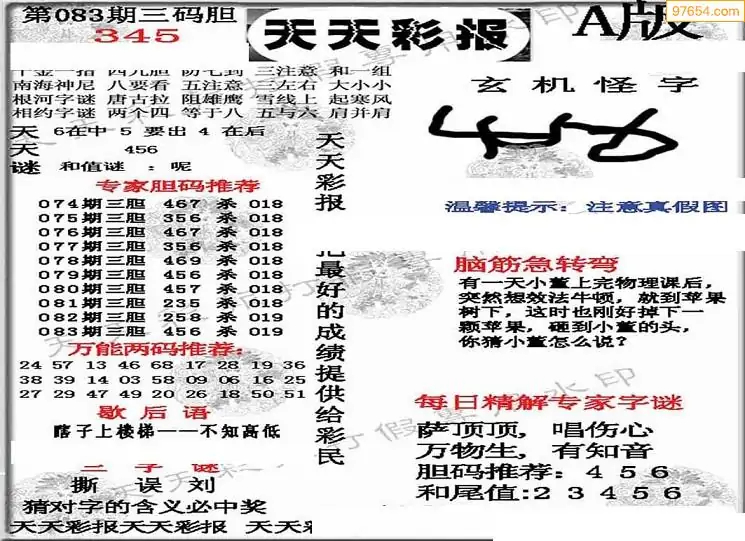 97654.com
第083期三码胆
345
天天彩报
A版
千金一指 四九胆 防七到 三注意 和一组
南海神尼 八要看 五注意 三左右 大小小
根河字谜 唐古拉 阻雄鹰 雪线上 起寒风
相约字谜 两个四 等于八 五与六 肩并肩
天 6在中 5 要出 4 在后
天 456
谜 和值谜 : 呢
玄机怪字
温馨提示: 注意真假图
专家胆码推荐
074期三胆 467 杀 018
075期三胆 356 杀 018
076期三胆 469 杀 018
077期三胆 356 杀 018
078期三胆 469 杀 018
079期三胆 456 杀 018
080期三胆 457 杀 018
081期三胆 235 杀 018
082期三胆 256 杀 019
083期三胆 456 杀 019
万能两码推荐:
24 57 13 46 68 17 28 19 36
38 39 14 03 58 09 06 16 25
27 29 47 49 20 26 18 50 51
歇后语
瞎子上楼梯——不知高低
二字谜
撕 误 刘
猜对字的含义必中奖
天天彩报天天彩报 天天彩
天天彩报
把最好的成绩提供给彩民
脑筋急转弯
有一天小董上完物理课后,
突然想效法牛顿, 就到苹果
树下, 这时也刚好掉下一
颗苹果, 砸到小董的头,
你猜小董怎么说?
每日精解专家字谜
萨顶顶, 唱伤心
万物生, 有知音
胆码推荐: 4 5 6
和尾值: 2 3 4 5 6